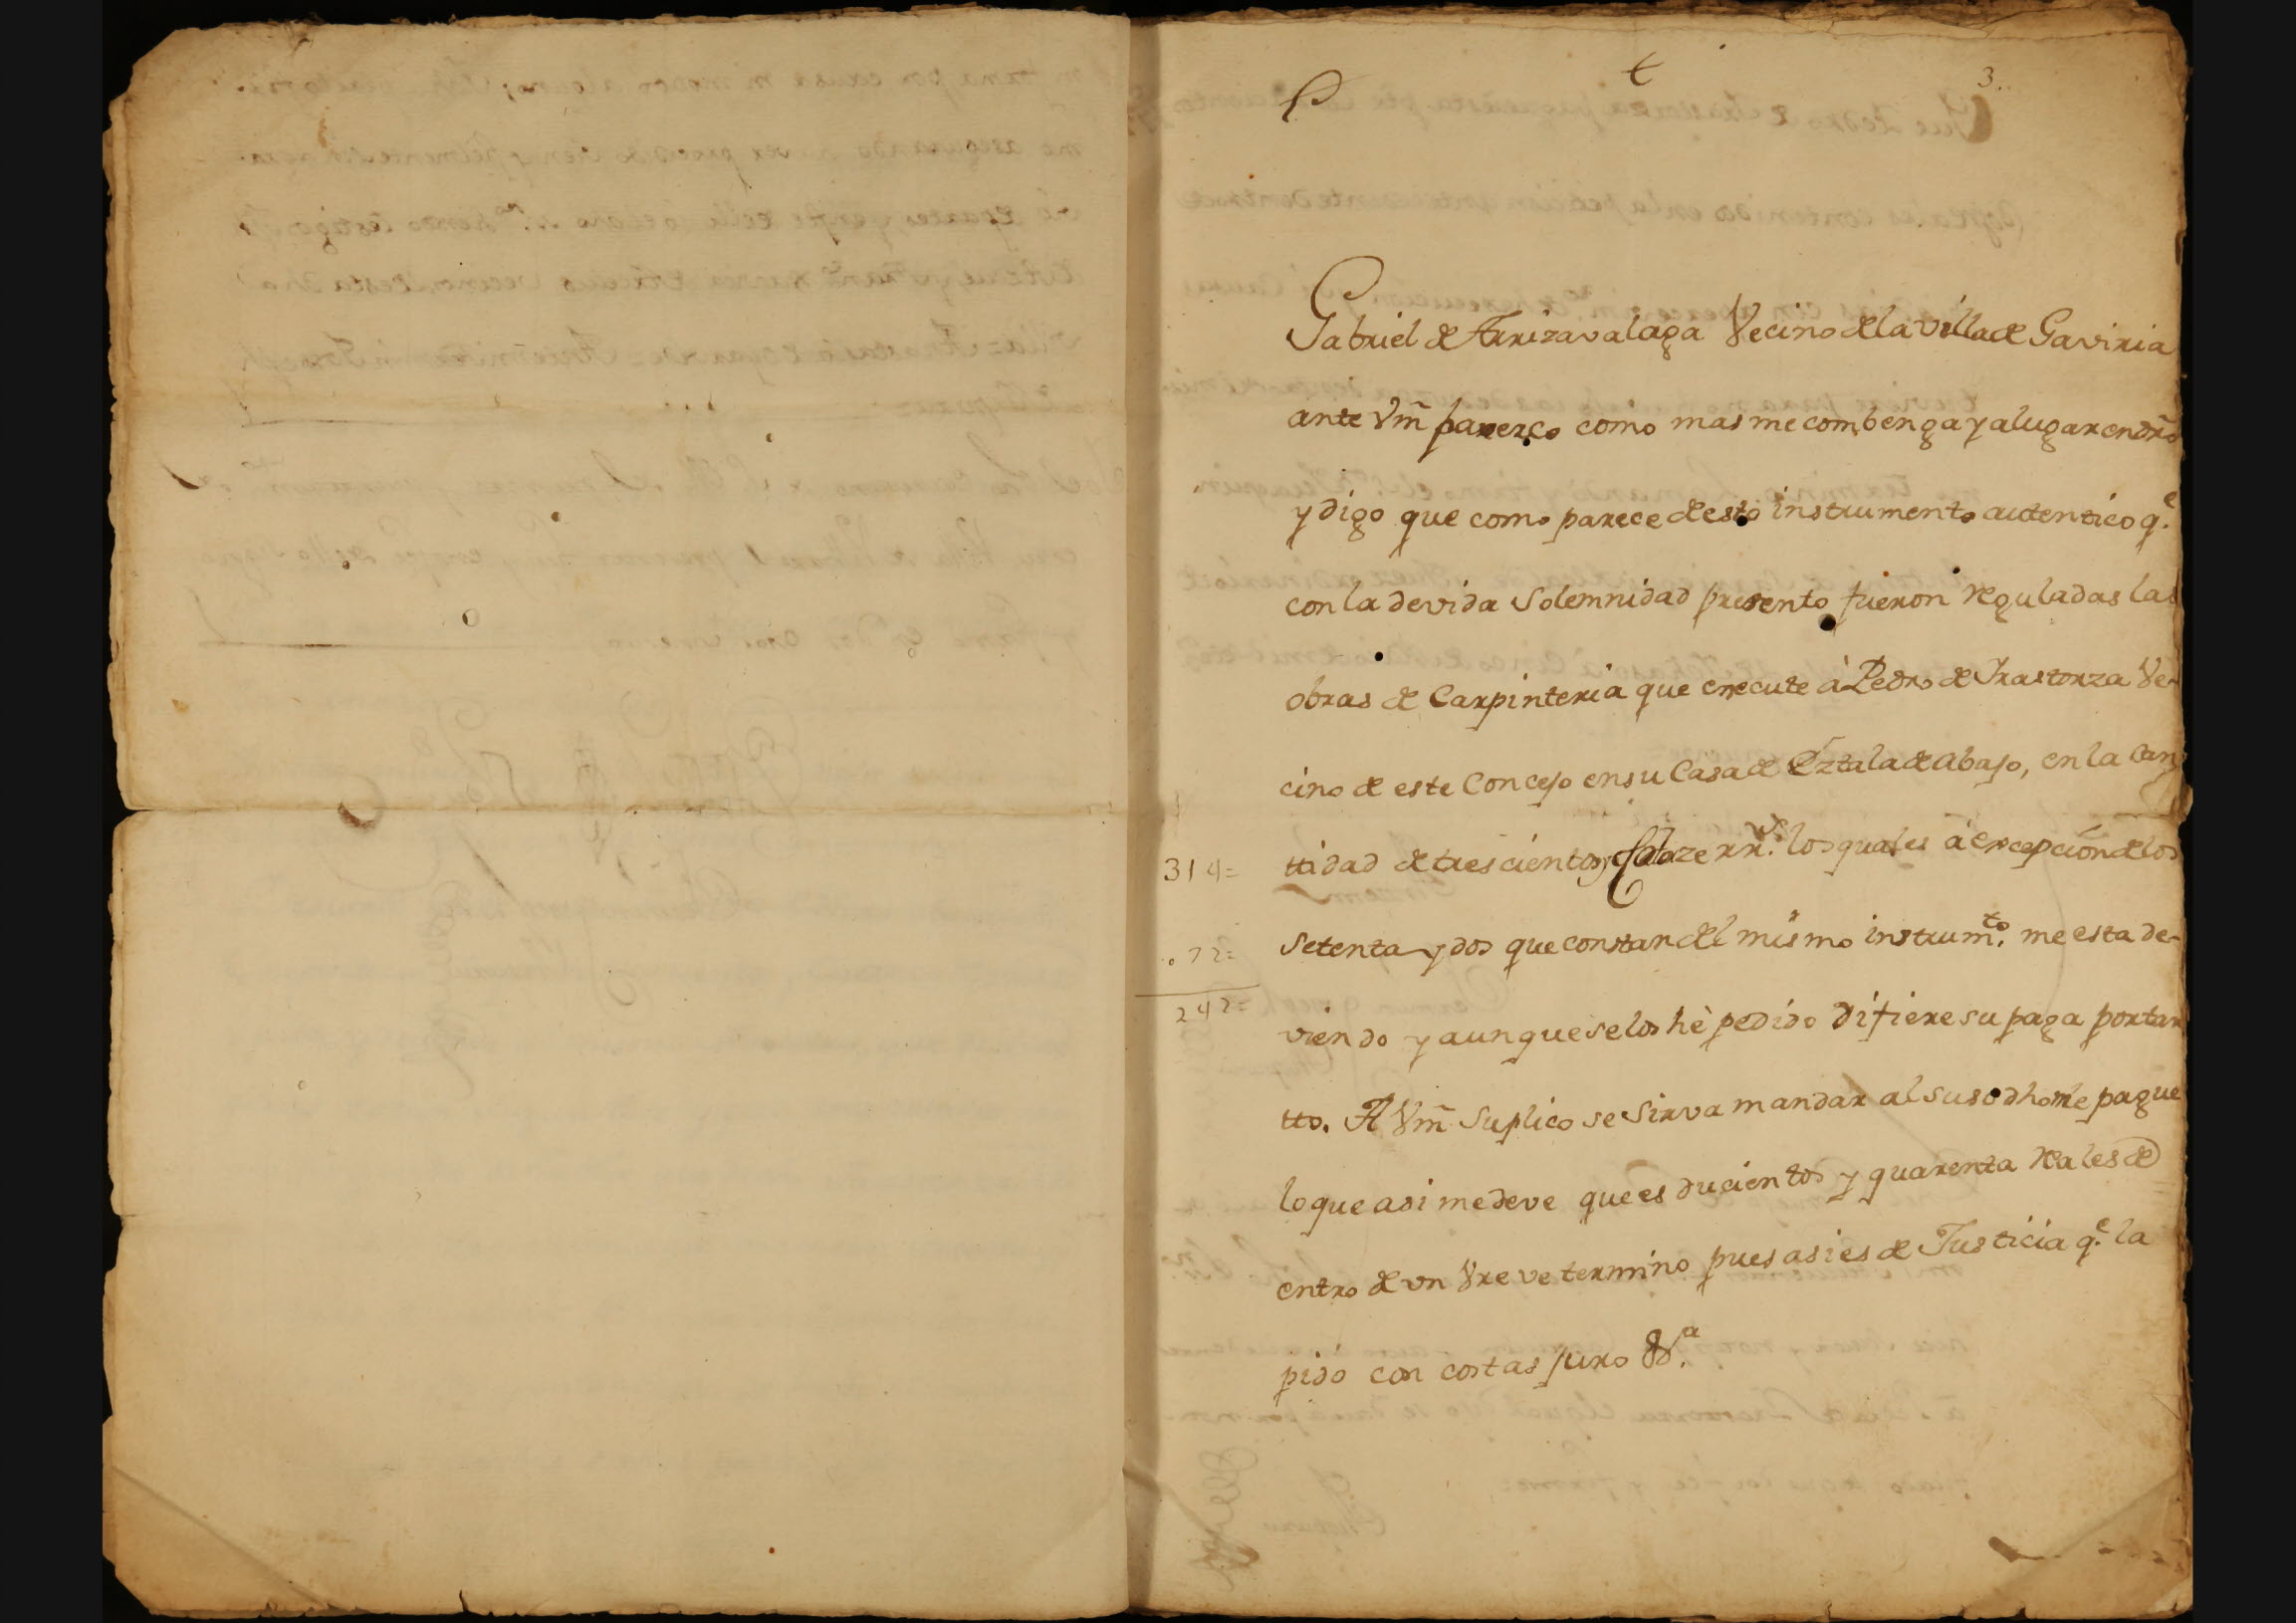 3
Gabriel de Arrizavalaga Vecino de la villa de Gaviria
ante Vm̃ parezco como mas me combenga y a lugar en dr̃o
y digo que como parece de esto instrumento autentico q.e
con la devida solemnidad presento fueron reguladas las
obras de Carpinteria que execute à Pedro de Irastorza Ve-
cino de este Concejo en su Casa de Eztala de abajo, en la can
314= ttidad de trescientos y Catorze rr.s los quales à excepción de los
.72= setenta y dos que constan del mismo instrum.to me esta de-
242= viendo y aunque se los hè pedido difiere su paga por tan
tto. A Vm̃ suplico se sirva mandar al susodho me pague
lo que asi me deve que es ducientos y quarenta reales de
entro de vn vreve termino pues asi es de Justicia q.e la
pido con costas juro &.a